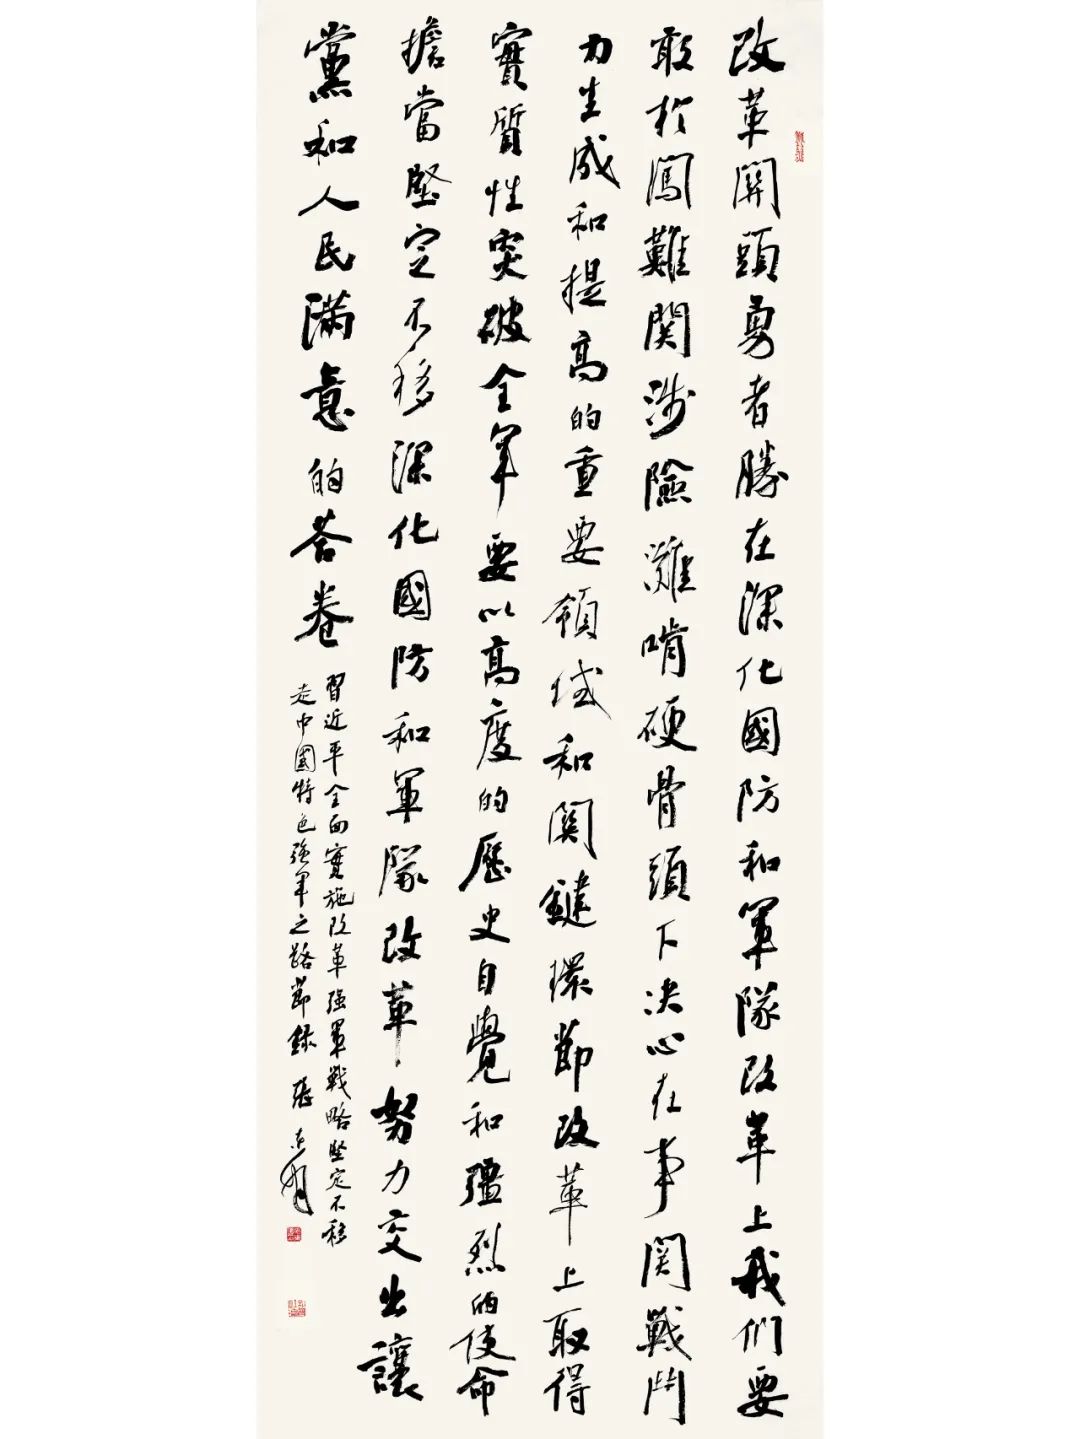 改革關頭勇者勝在深化國防和軍隊改革上我们要
敢於闖難関涉險灘啃硬骨頭下决心在事関戰鬥
力生成和提高的重要領域和関鍵環節改革上取得
實質性突破全軍要以高度的歷史自覺和彊烈的使命
擔當堅定不移深化國防和軍隊改革努力交出讓
黨和人民满意的荅卷
習近平全面實施改革强軍戰略坚定不移
走中國特色强軍之路節録 張